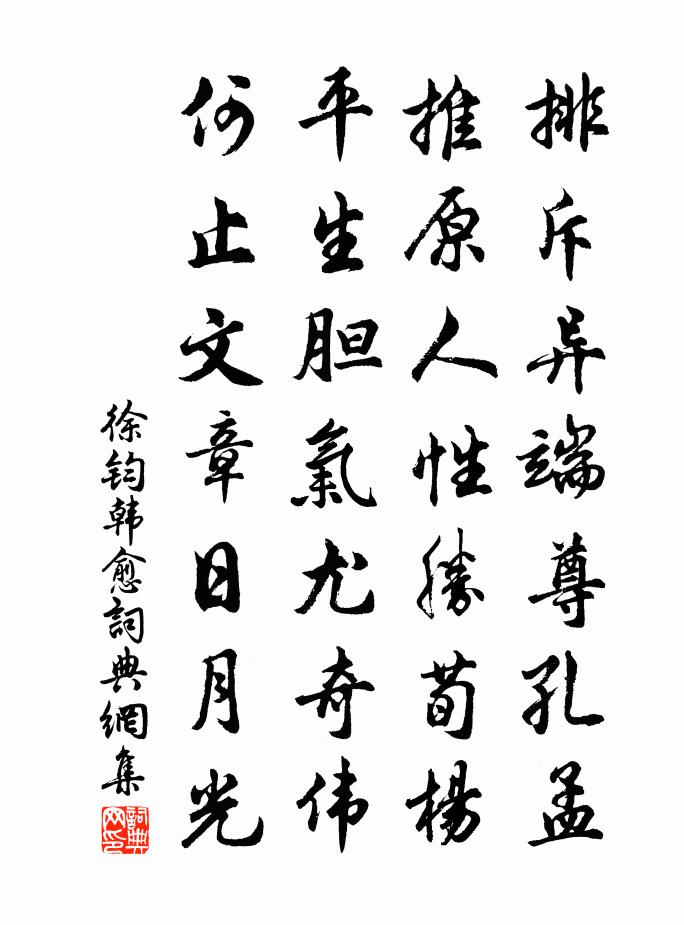 排斥异端尊孔孟
推原人性勝荀楊
平生胆氣尤奇伟
何止文章日月光
徐钧韩愈詞典網集
詞典
网印